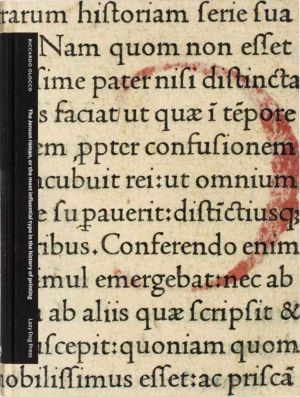 RICCARDO OLOCCO
The Jenson roman, or the most influential type in the history of printing
Lazy Dog Press
rarum hiſtoriam ſerie ſua
Nam quom non eſſet
ſime pater niſi diſtincta
s faciat ut quæ ī tēpore
em ꝓpter confuſionem
ncubuit rei:ut omnium
e ſuꝑauerit:diſtīctiuſq;
ribus. Conferendo enim
imul emergebat:nec ab
ab aliis quæ ſcripſit &
uſcepit:quoniam quom
nobiliſſimus eſſet:ac priſcā